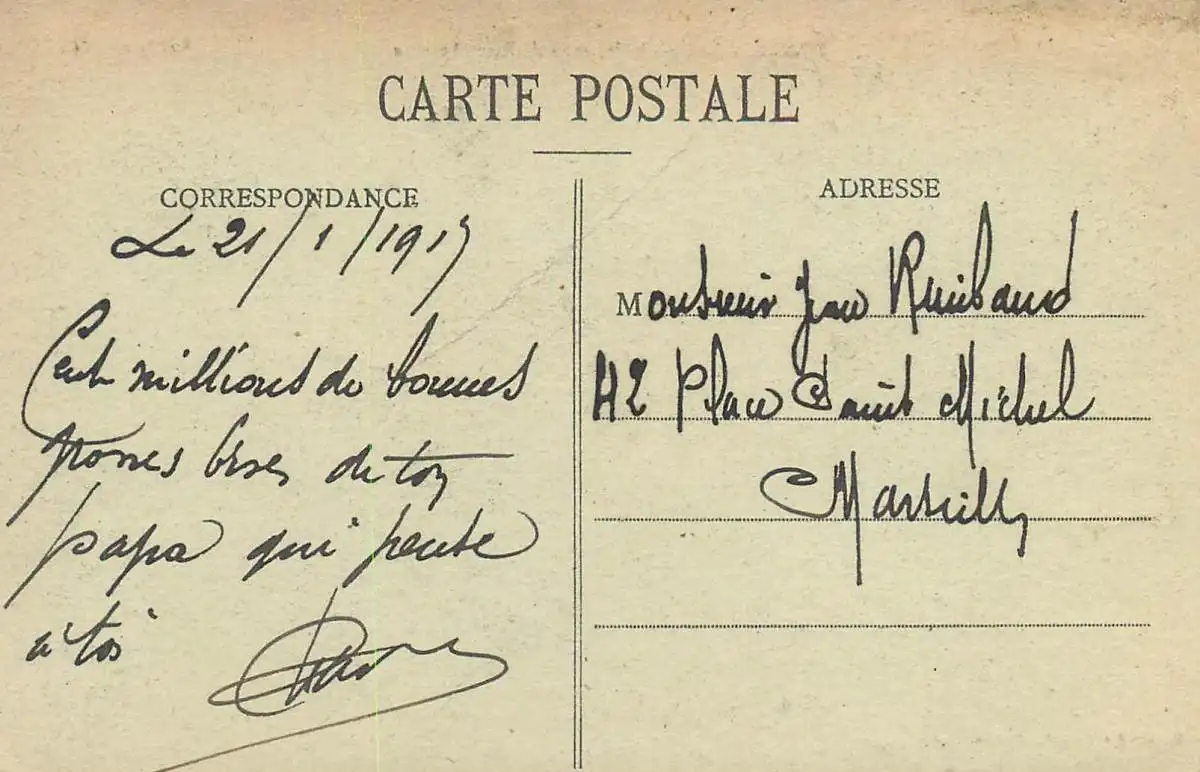 CARTE POSTALE
CORRESPONDANCE
Le 21/1/1917
Cent millions de bonnes
grosses bises de ton
papa qui pense
à toi
ADRESSE
Monsieur Jean Rimbaud
42 Place Saint Michel
Marseille